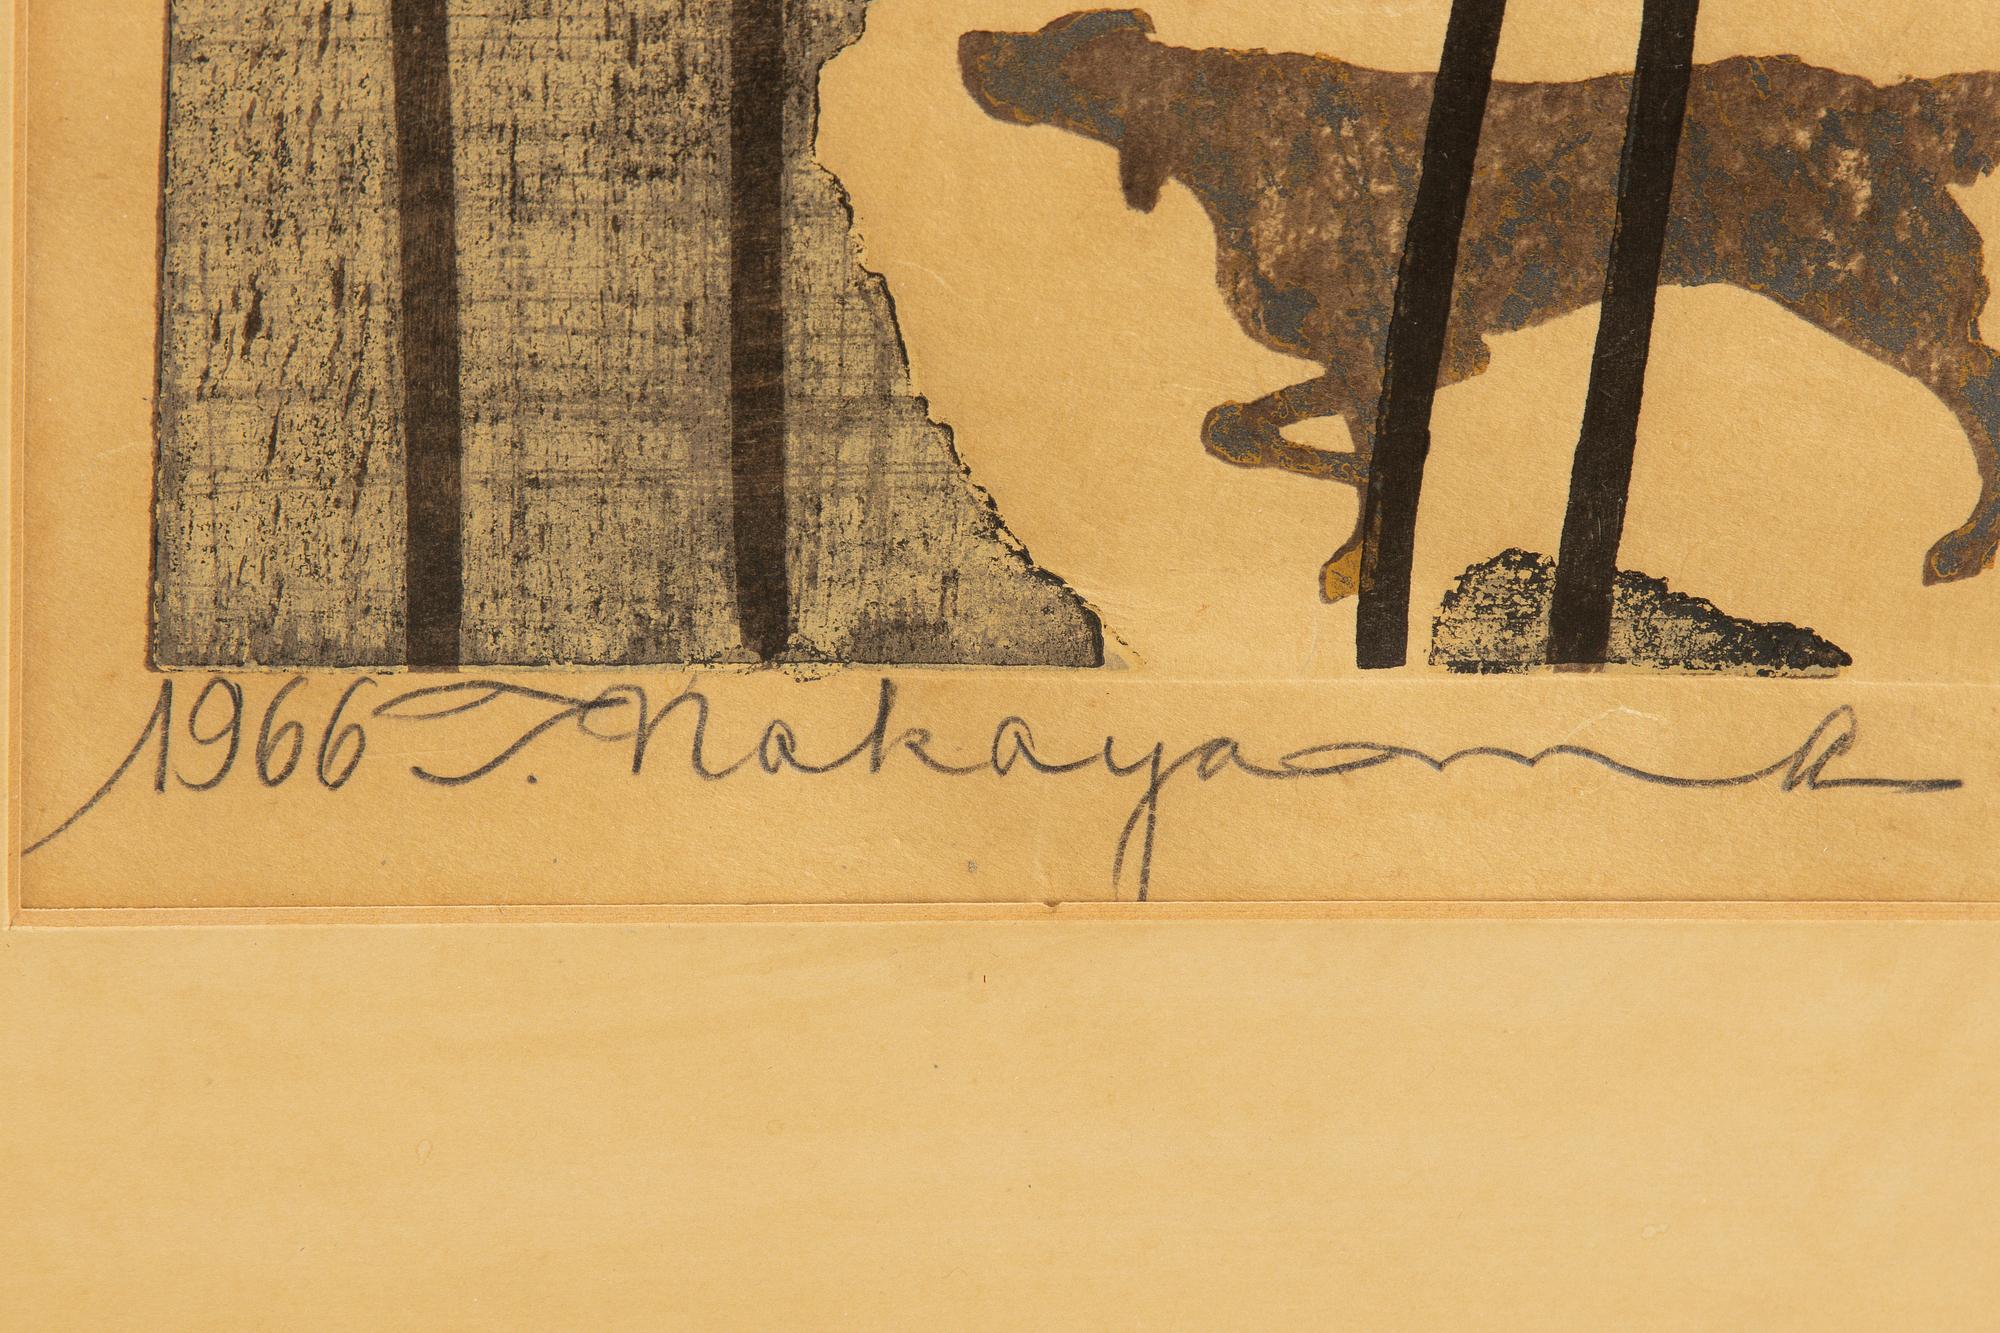 1966 T. Nakayama